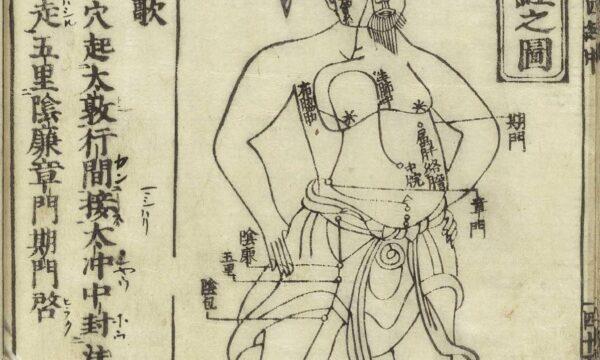 之圖
期門
屬肝絡膽
中脘
章門
布脇肋
陰廉
五里
陰包
歌
穴起太敦行間接太冲中封
走五里陰廉章門期門啓